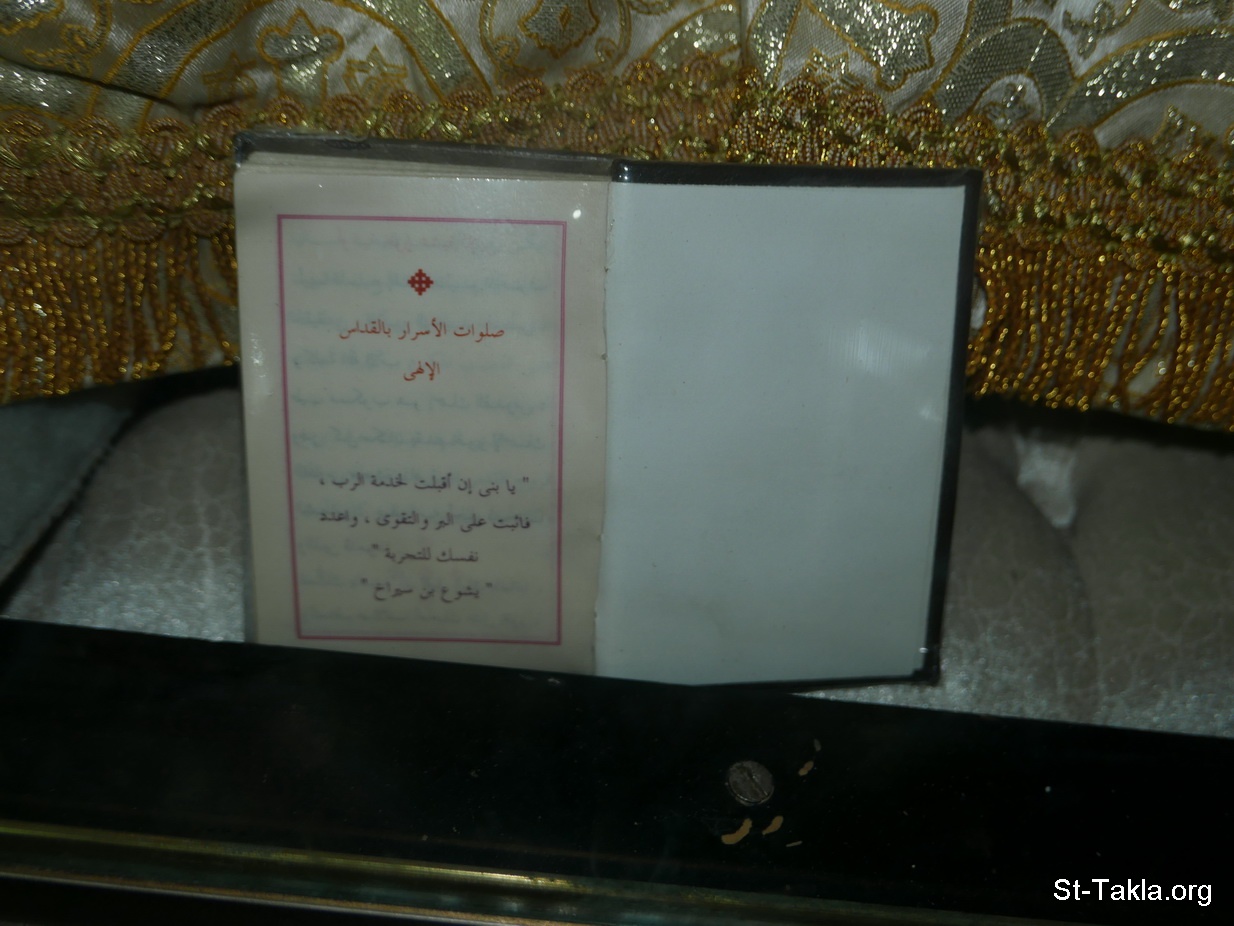 صلوات الأسرار بالقداس
الإلهى
" يا بنى إن أقبلت لخدمة الرب ،
فاثبت على البر والتقوى ، واعدد
نفسك للتجربة "
" يشوع بن سيراخ "
St-Takla.org